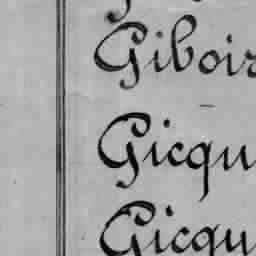 Giboir
Gicqu
Gicqu